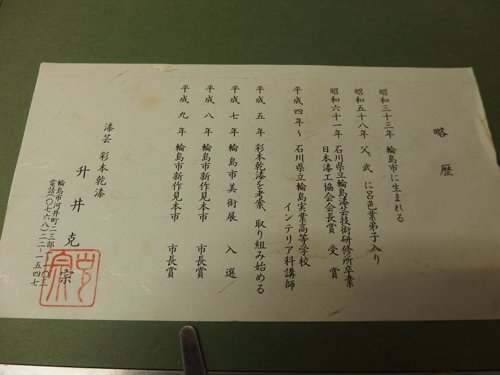 略歴
昭和三十三年 輪島市に生まれる
昭和五十八年 父、武 に呂色業弟子入り
昭和六十一年 石川県立輪島漆芸技術研修所卒業
日本漆工協会会長賞 受賞
平成四年～ 石川県立輪島実業高等学校
インテリア科講師
平成五年 彩本乾漆を考案、取り組み始める
平成七年 輪島市美術展 入選
平成八年 輪島市新作見本市 市長賞
平成九年 輪島市新作見本市 市長賞
漆芸 彩本乾漆
升井克宗
輪島市河井町二三部一ー一〇三
電話〇七六八ー二二ー一五四七